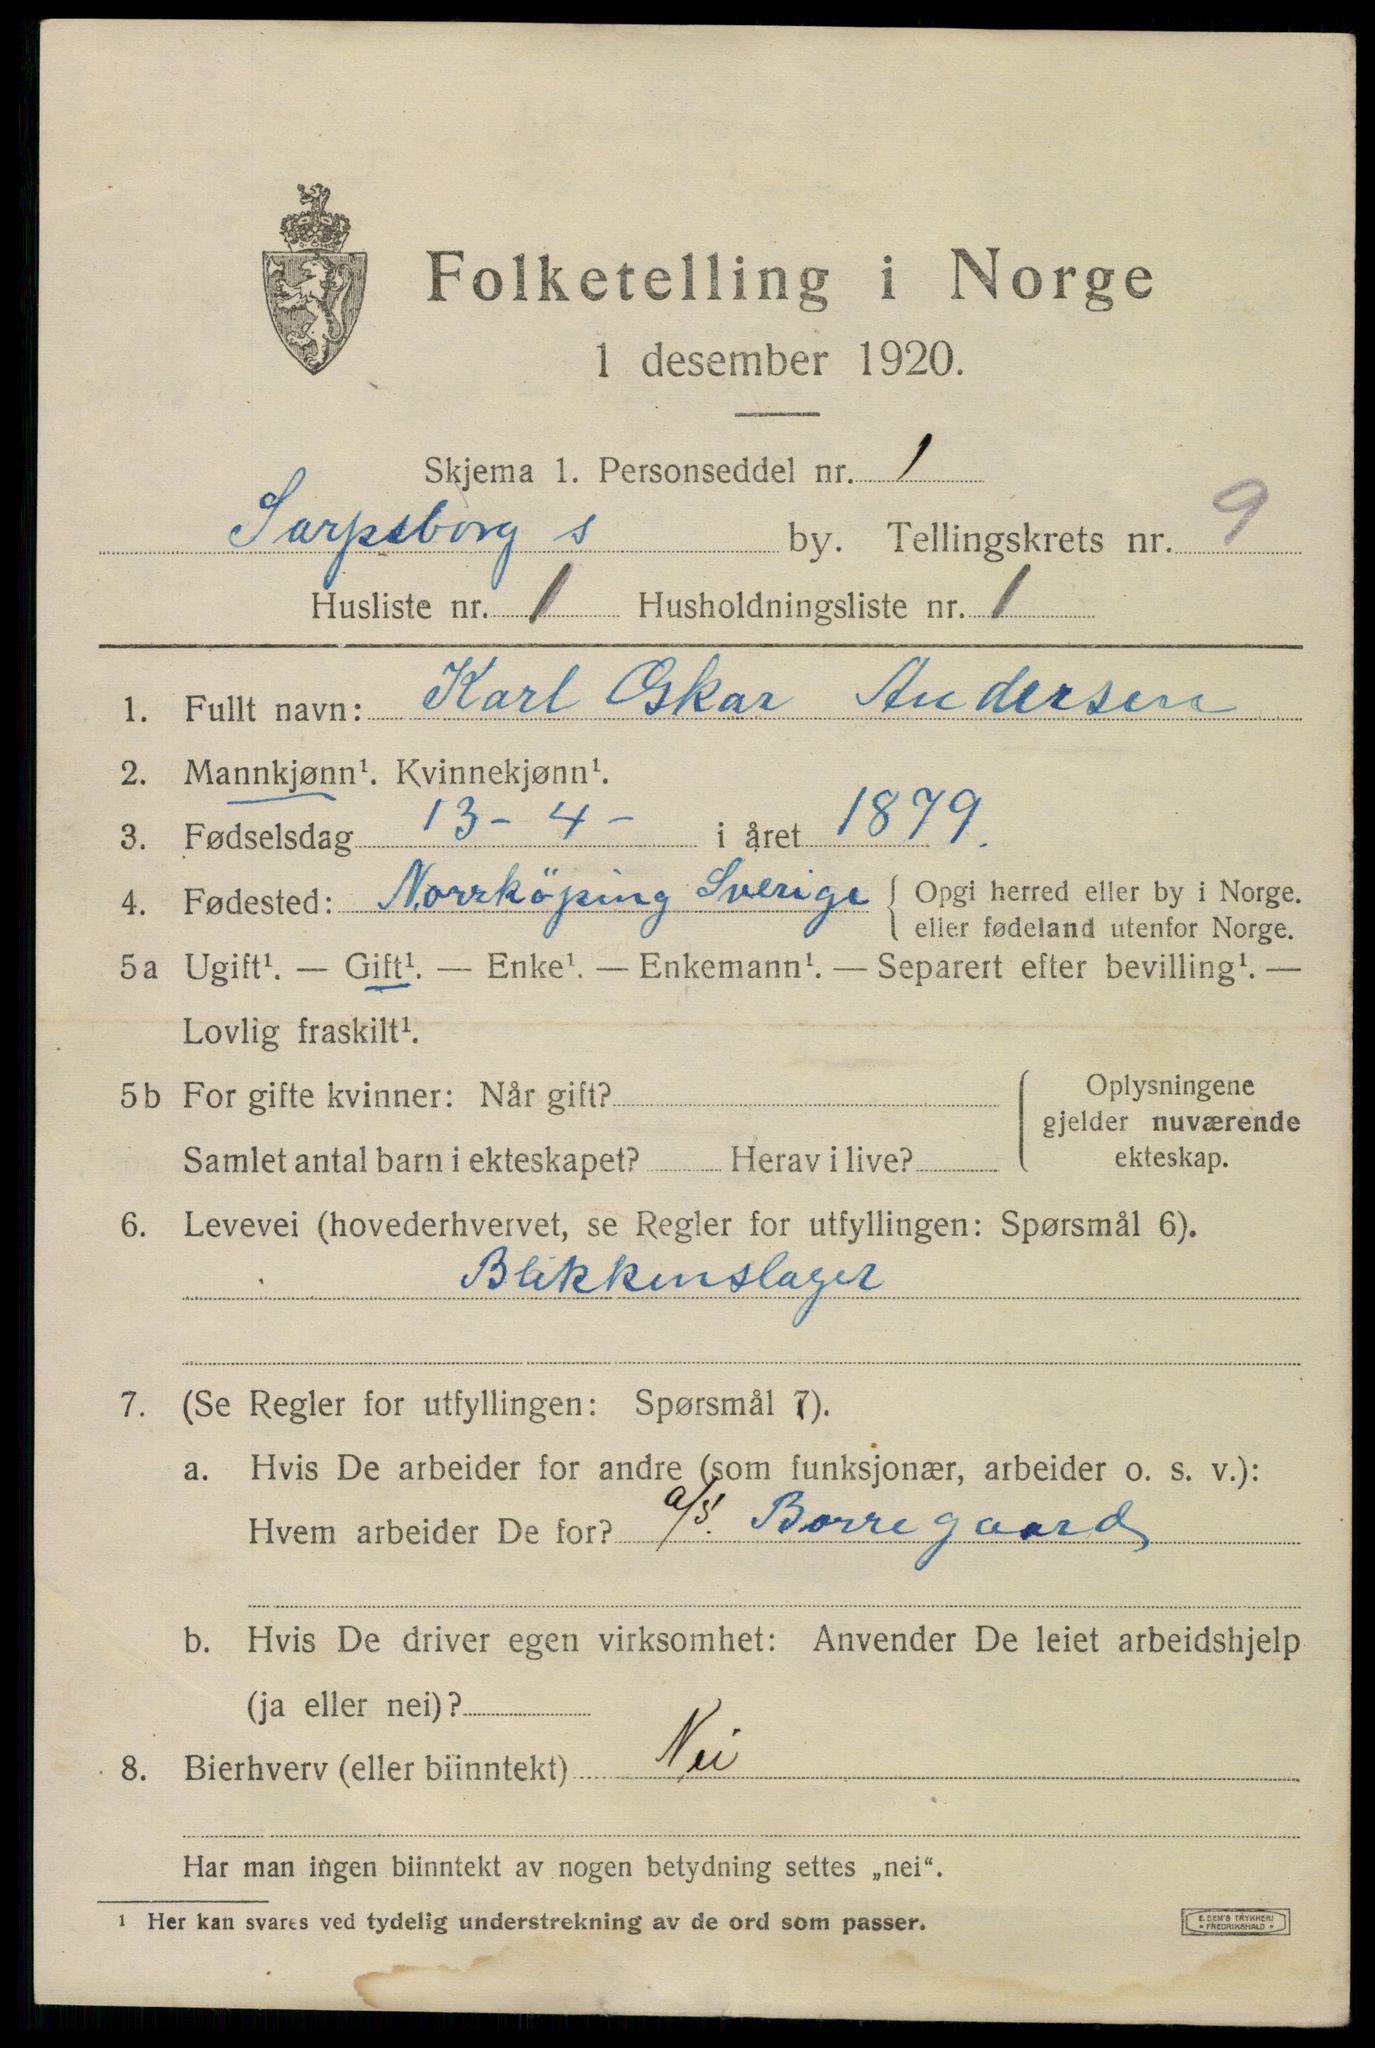 Folketelling i Norge
1 desember 1920.
Skjema 1. Personseddel nr. 1
Sarpsborg s by. Tellingskrets nr. 9
Husliste nr. 1 Husholdningsliste nr. 1
1. Fullt navn: Karl Oskar Andersen
2. Mannkjønn¹. Kvinnekjønn¹.
3. Fødselsdag 13 - 4 - i året 1879.
4. Fødested: Norrköping Sverige { Opgi herred eller by i Norge.
eller fødeland utenfor Norge.
5a Ugift¹. — Gift¹. — Enke¹. — Enkemann¹. — Separert efter bevilling¹. —
Lovlig fraskilt¹.
5b For gifte kvinner: Når gift?
Samlet antal barn i ekteskapet? Herav i live?
Oplysningene
gjelder nuværende
ekteskap.
6. Levevei (hovederhvervet, se Regler for utfyllingen: Spørsmål 6).
Blikkenslager
7. (Se Regler for utfyllingen: Spørsmål 7).
a. Hvis De arbeider for andre (som funksjonær, arbeider o. s. v.):
Hvem arbeider De for? a/s. Borregaard
b. Hvis De driver egen virksomhet: Anvender De leiet arbeidshjelp
(ja eller nei)?
8. Bierhverv (eller biinntekt) Nei
Har man ingen biinntekt av nogen betydning settes „nei“.
¹ Her kan svares ved tydelig understrekning av de ord som passer.
E. SEM'S TRYKKERI
* FREDRIKSHALD *